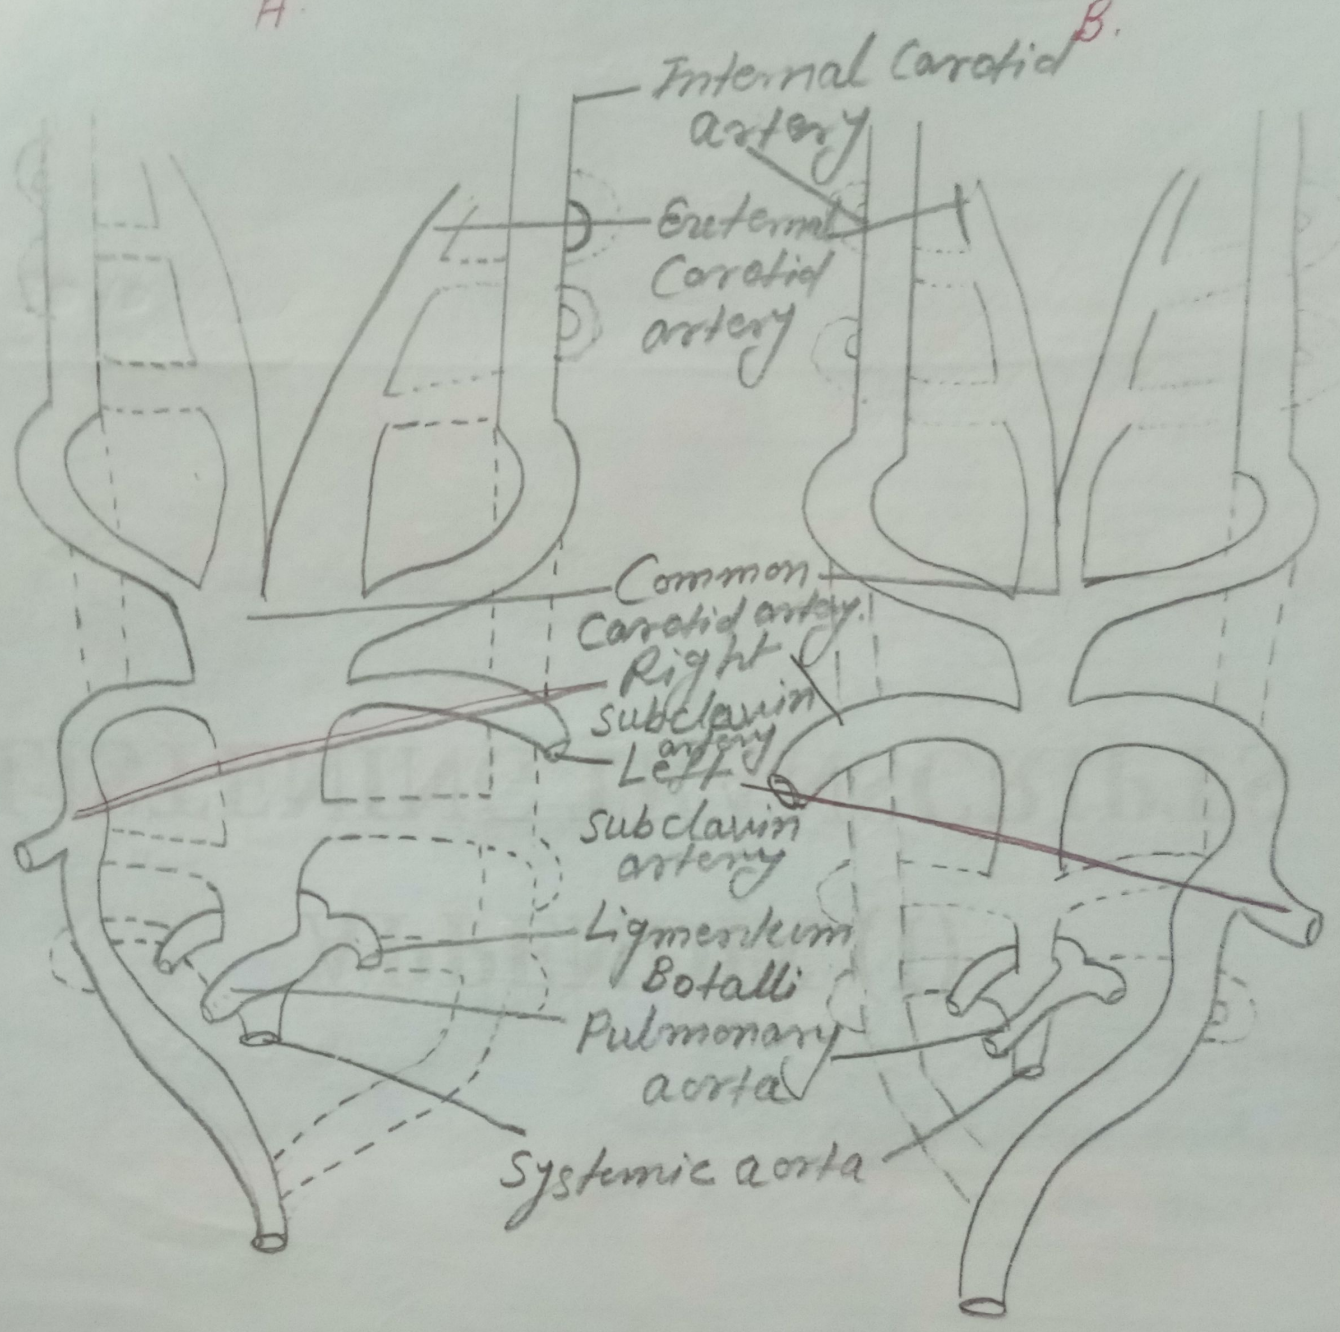 A.
B.
Internal Carotid
artery
External
Carotid
artery
Common
Carotid artery.
Right
subclavin
artery
Left
subclavin
artery
Ligmentum
Botalli
Pulmonary
aorta
Systemic aorta